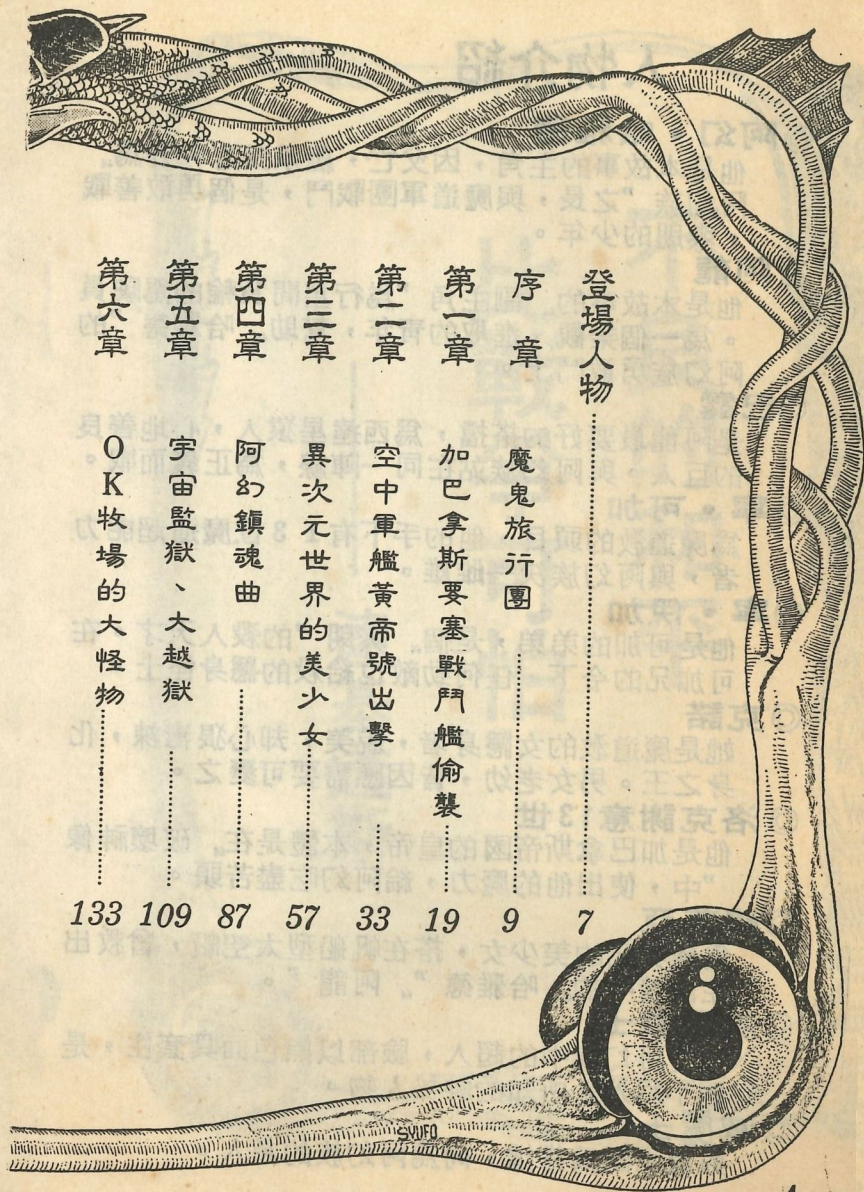 登場人物 7
序章 魔鬼旅行團 9
第一章 加巴拿斯要塞戰鬥艦偷襲 19
第二章 空中軍艦黃帝號出擊 33
第三章 異次元世界的美少女 57
第四章 阿幻鎮魂曲 87
第五章 宇宙監獄、大越獄 109
第六章 OK牧場的大怪物 133
SYUFO